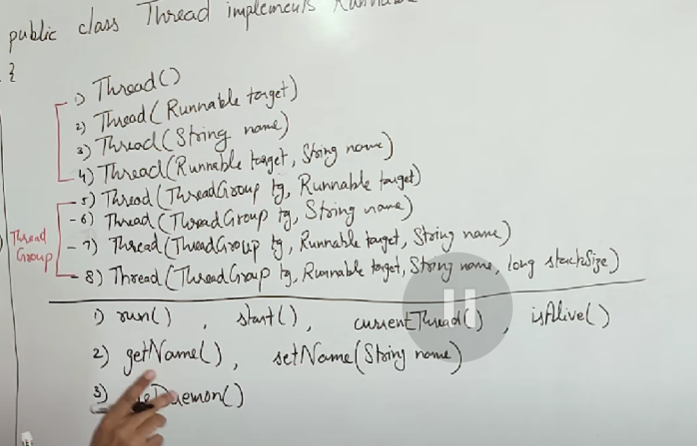 public class Thread implements
{
1) Thread()
2) Thread(Runnable target)
3) Thread(String name)
4) Thread(Runnable target, String name)
5) Thread(ThreadGroup tg, Runnable target)
6) Thread(ThreadGroup tg, String name)
7) Thread(ThreadGroup tg, Runnable target, String name)
8) Thread(ThreadGroup tg, Runnable target, String name, long stackSize)
Thread
Group
1) run(), start(), currentThread(), isAlive()
2) getName(), setName(String name)
3)